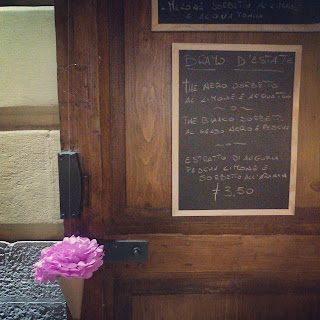 NERO SORBETTO AL LIMONE
E ACQUA TONICA
BRAMO D'ESTATE
THE NERO SORBETTO
AL LIMONE E ACQUA TONICA
THE BIANCO SORBETTO
AL GELSO NERO E PESCHE
ESTRATTO DI ANGURIA
PESCHE LIMONE E
SORBETTO ALL'ARANCIA
7,50